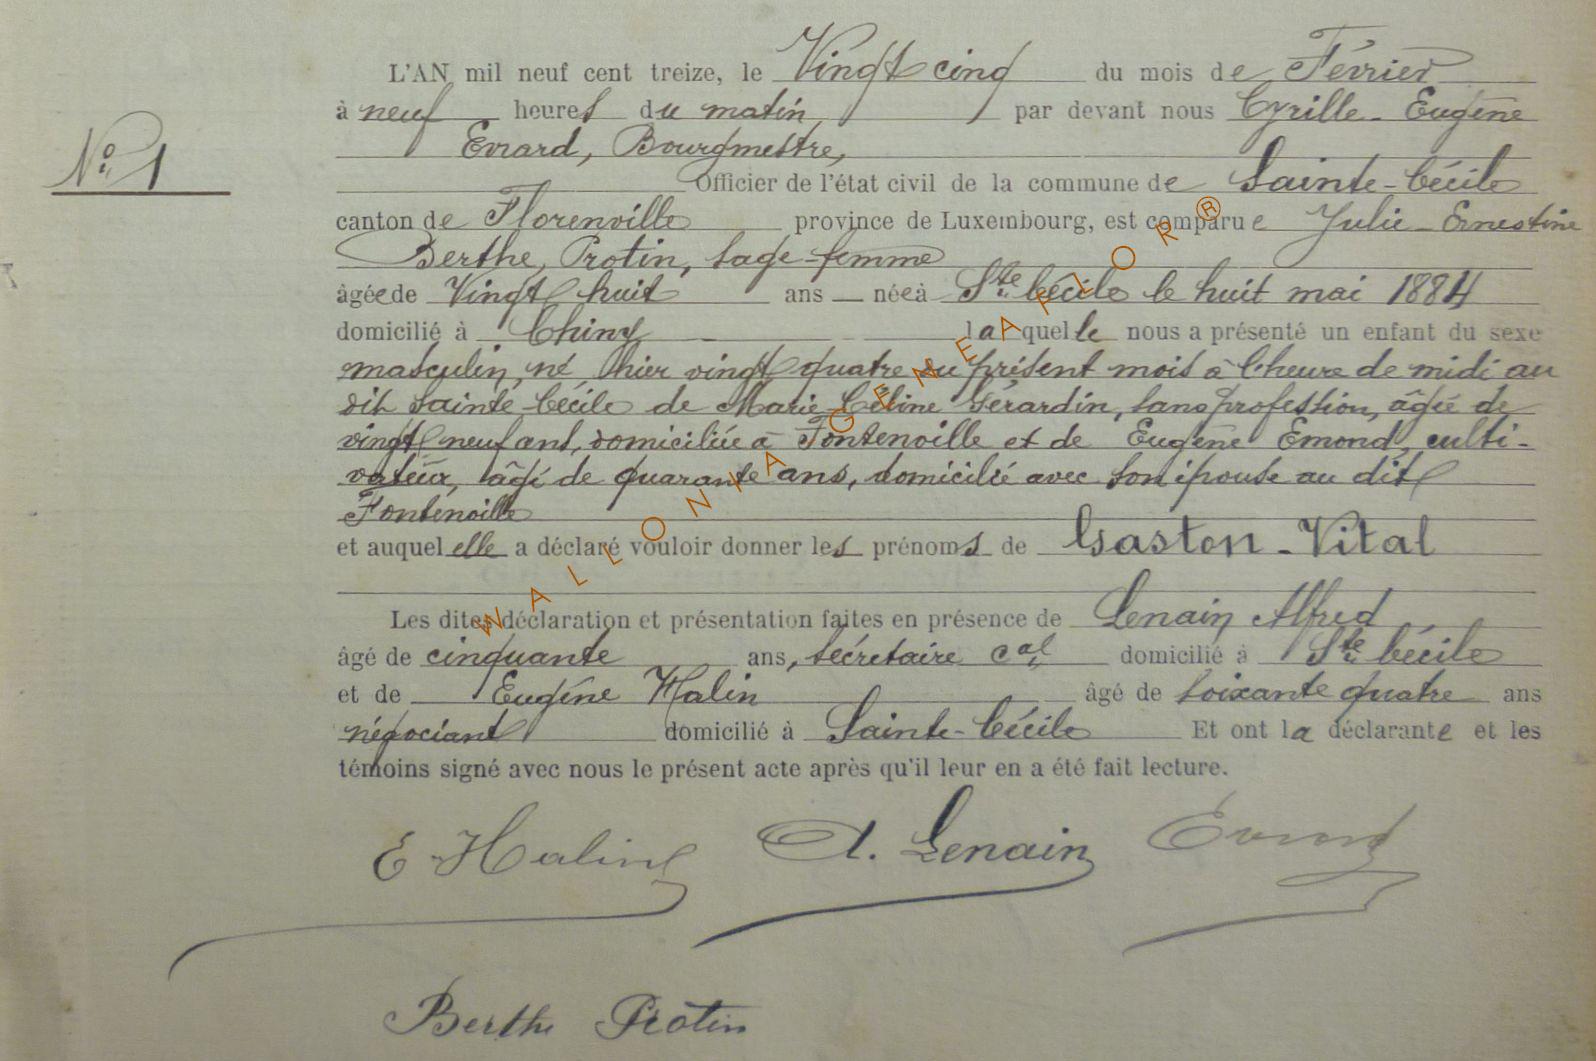 L'AN mil neuf cent treize, le Vingt cinq du mois de Février
à neuf heures du matin, par devant nous Cyrille-Eugène
Evrard, Bourgmestre,
N° 1
Officier de l'état civil de la commune de Sainte-Cécile
canton de Florenville province de Luxembourg, est comparue Julie-Ernestine
Berthe, Protin, sage-femme
âgée de Vingt huit ans — née à Ste Cécile le huit mai 1884
domicilié à Chiny laquelle nous a présenté un enfant du sexe
masculin, né hier vingt quatre du présent mois à l'heure de midi au
dit Sainte-Cécile de Marie-Céline Gérardin, sans profession, âgée de
vingt neuf ans, domiciliée à Fontenoille et de Eugène Emond, culti-
vateur, âgé de quarante ans, domicilié avec son épouse au dit
Fontenoille
et auquel elle a déclaré vouloir donner les prénoms de Gaston-Vital
Les dites déclaration et présentation faites en présence de Lenain Alfred
âgé de cinquante ans, secrétaire cal domicilié à Ste Cécile
et de Eugène Halin âgé de soixante quatre ans
négociant domicilié à Sainte-Cécile Et ont la déclarante et les
témoins signé avec nous le présent acte après qu'il leur en a été fait lecture.
E Halin A. Lenain Evrard
Berthe Protin
WALLONIA GENEAFLOR ®